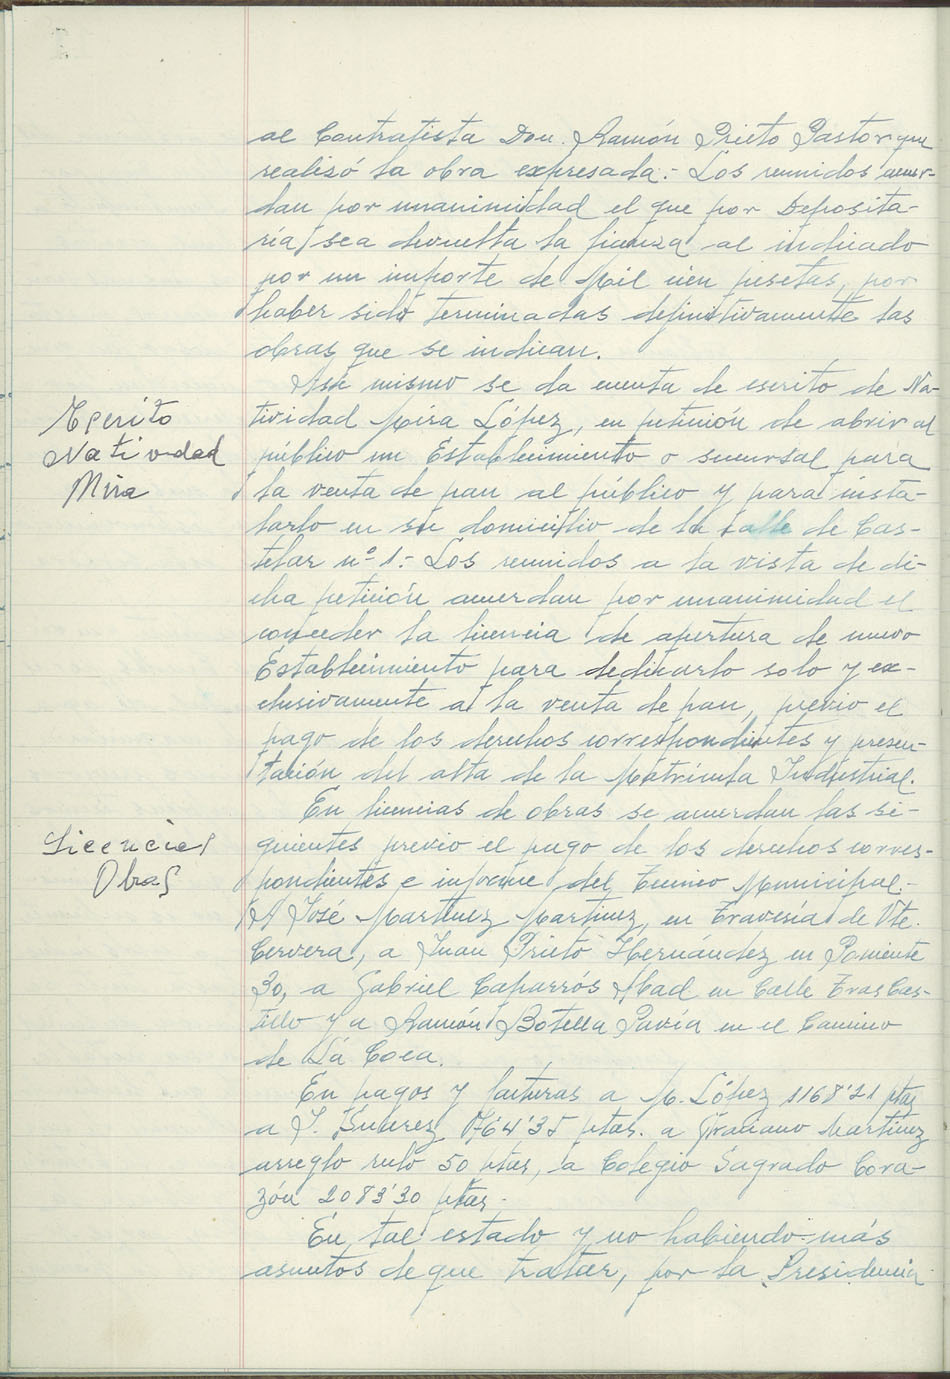 al Contratista Don. Ramón Prieto Pastor que
realisó la obra expresada.- Los reunidos acuer-
dan por unanimidad el que por Deposita-
ría sea devuelta la fianza al indicado
por un importe de Mil cien pesetas, por
haber sido terminadas definitivamente las
obras que se indican.
Así mismo se da cuenta de escrito de Na-
tividad Mira López, en petición de abrir al
público un Establecimiento o sucursal para
la venta de pan al público y para insta-
larlo en su domicilio de la calle de Cas-
telar nº 1.- Los reunidos a la vista de di-
cha petición acuerdan por unanimidad el
conceder la licencia de apertura de nuevo
Establecimiento para dedicarlo solo y ex-
clusivamente a la venta de pan, previo el
pago de los derechos correspondientes y presen-
tación del alta de la Matrícula Industrial.
En licencias de obras se acuerdan las si-
guientes previo el pago de los derechos corres-
pondientes e informe del Tecnico Municipal.-
A José Martinez Martinez, en Travesía de Vte.
Cervera, a Juan Prieto Hernández en Poniente
30, a Gabriel Caparrós Abad en Calle Tras Cas-
tillo y a Ramón Botella Pavía en el Camino
de La Coca.
En pagos y facturas a M. López 1168'21 ptas
a J. Suarez 764'35 ptas. a Graciano Martinez
arreglo 50 ptas, a Colegio Sagrado Cora-
zón 2083'30 ptas.
En tal estado y no habiendo más
asuntos de que tratar, por la Presidencia
Escrito
Natividad
Mira
Licencias
Obras